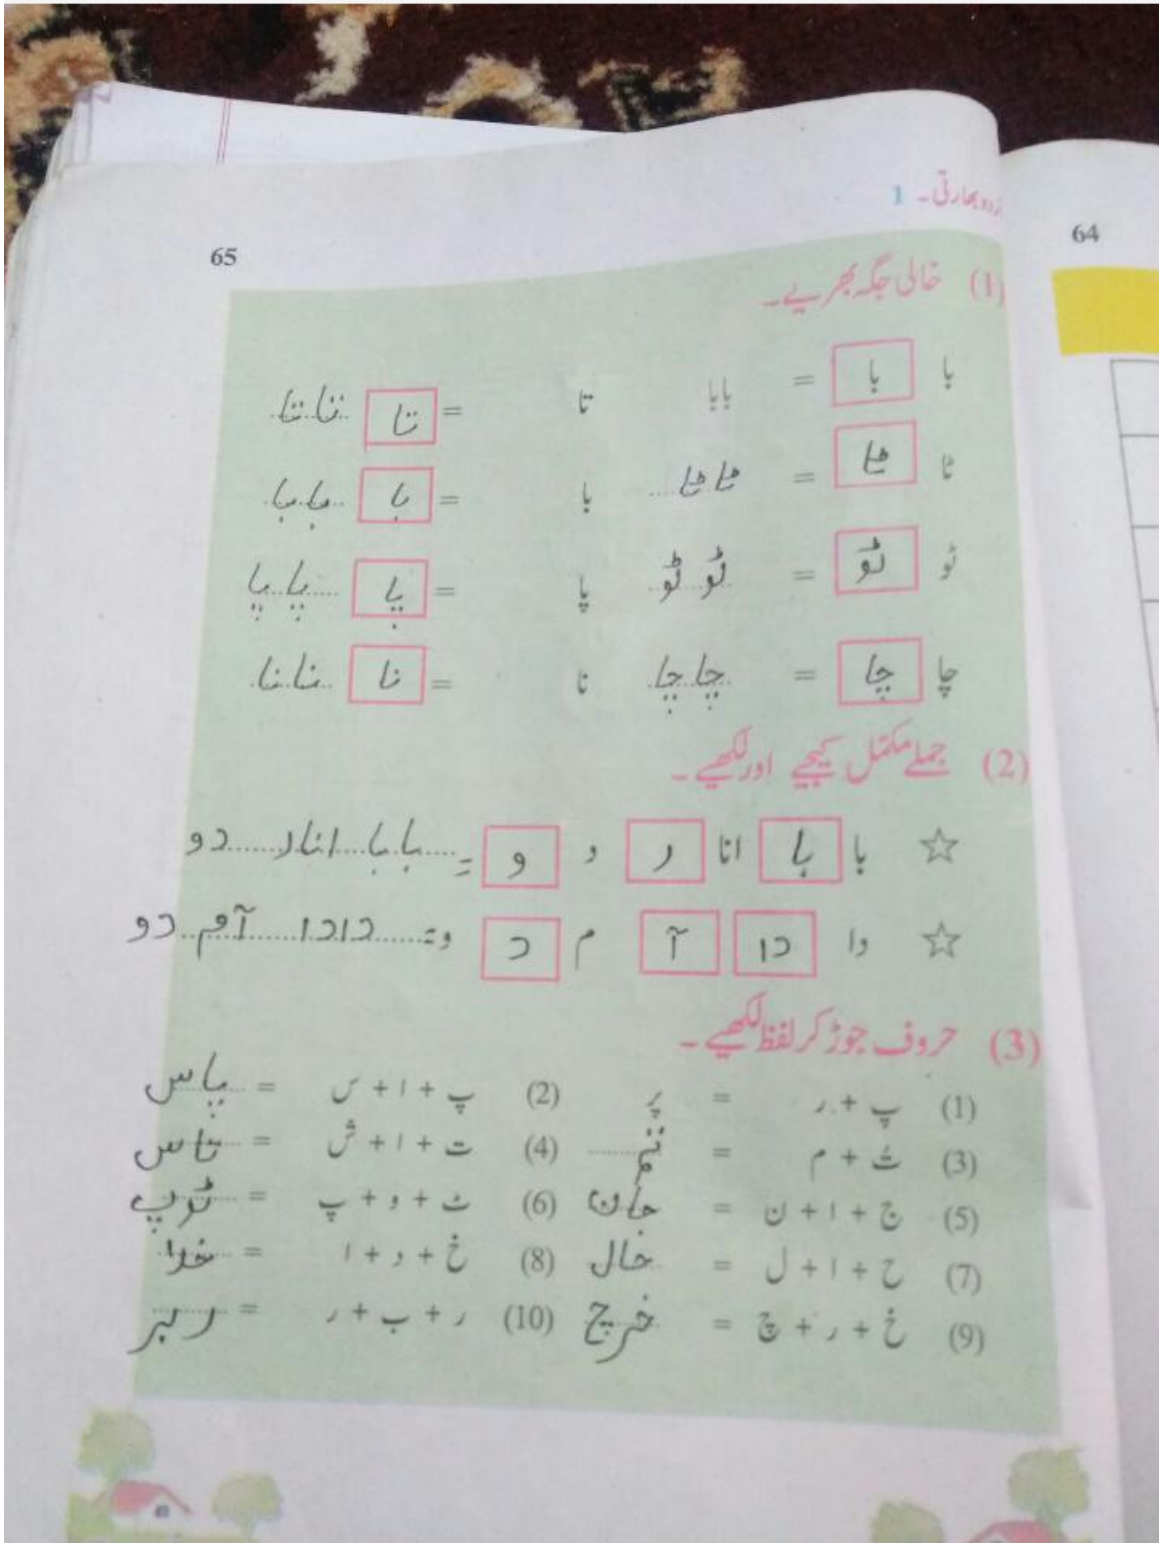 64
اردو بھارتی۔ 1
65
(1) خالی جگہ بھریے۔
با با = بابا تا تا = تاتا
ٹا ٹا = ٹاٹا با با = بابا
ٹو ٹو = ٹو ٹو پا پا = پاپا
چا چا = چاچا نا نا = نانا
(2) جملے مکمل کیجیے اور لکھیے۔
☆ با با انا ر د و = بابا انار دو
☆ دا دا آ م د و = دادا آم دو
(3) حروف جوڑ کر لفظ لکھیے۔
(1) پ + ر = پر (2) پ + ا + س = پاس
(3) ث + م = ثم (4) ت + ا + ش = تاس
(5) ج + ا + ن = جان (6) ٹ + و + پ = ٹوپ
(7) ح + ا + ل = حال (8) خ + د + ا = خدا
(9) خ + ر + چ = خرچ (10) ر + ب + ر = ربر